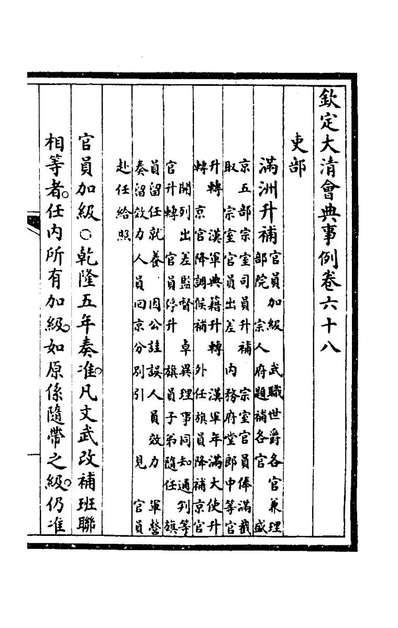 欽定大清會典事例卷六十八
吏部
滿洲升補 官員加級 武職世爵各官兼理
部院 宗人府題補各官 盛
京五部宗室司員升補 宗室官員俸滿截
取 宗室官員出差 內務府堂郎中等官
升轉 漢軍典籍升轉 漢軍年滿大使升
轉京官降調候補 外任旗員降補京官
開列出差監督 卓異理事同知通判等
官升轉 官員停升 旗員子弟隨任 旗
員留任就養 因公詿誤人員效力 軍營
奏留效力人員回京分別引 見 官員
赴任給照
官員加級○乾隆五年奏准。凡文武改補班聯
相等者。任內所有加級。如原係隨帶之級。仍准